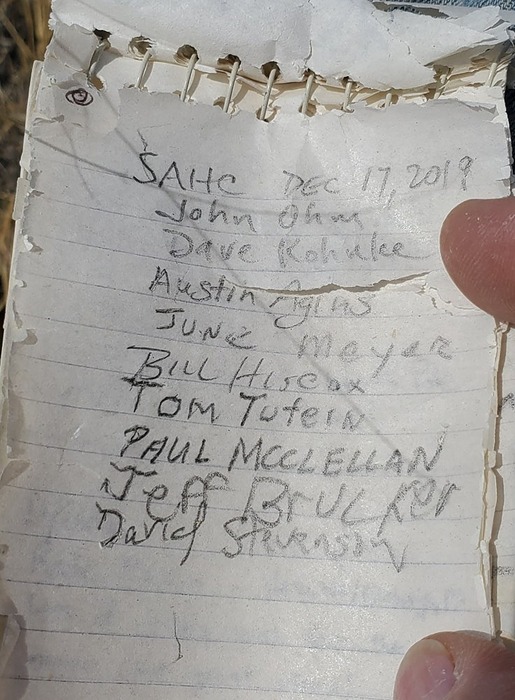 SAHC DEC 17, 2019
John Ohm
Dave Kohnke
Austin Agins
JUNE Meyer
BILL Hiscox
TOM TUTEIN
PAUL MCCLELLAN
Jeff Brucker
David Stevenson